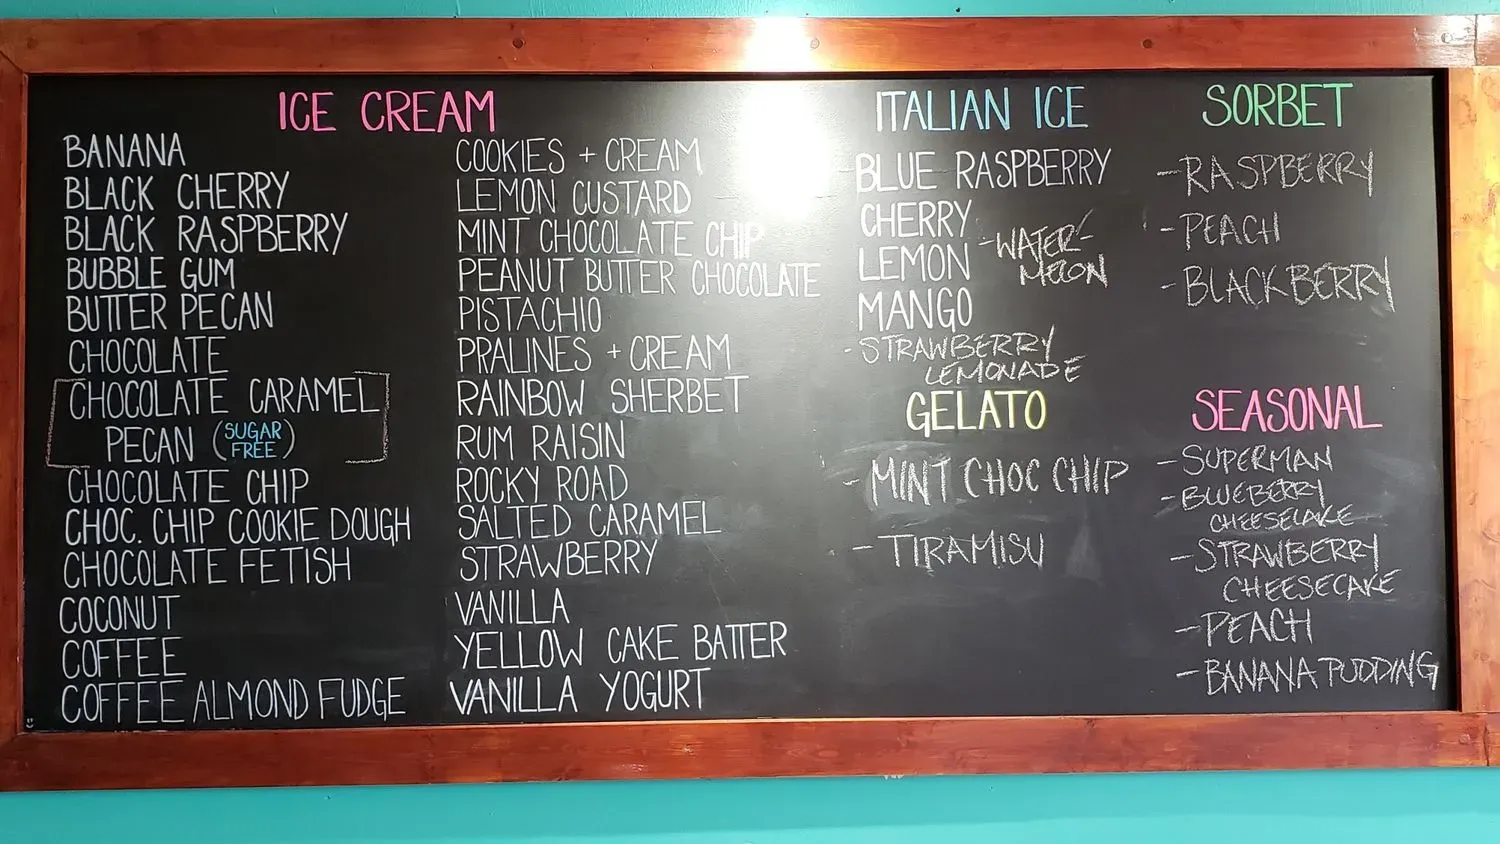 ICE CREAM
BANANA
BLACK CHERRY
BLACK RASPBERRY
BUBBLE GUM
BUTTER PECAN
CHOCOLATE
CHOCOLATE CARAMEL
PECAN (SUGAR
FREE)
CHOCOLATE CHIP
CHOC. CHIP COOKIE DOUGH
CHOCOLATE FETISH
COCONUT
COFFEE
COFFEE ALMOND FUDGE
COOKIES + CREAM
LEMON CUSTARD
MINT CHOCOLATE CHIP
PEANUT BUTTER CHOCOLATE
PISTACHIO
PRALINES + CREAM
RAINBOW SHERBET
RUM RAISIN
ROCKY ROAD
SALTED CARAMEL
STRAWBERRY
VANILLA
YELLOW CAKE BATTER
VANILLA YOGURT
ITALIAN ICE
BLUE RASPBERRY
CHERRY
LEMON
MANGO
- STRAWBERRY
LEMONADE
- WATER-
MELON
GELATO
- MINT CHOC CHIP
- TIRAMISU
SORBET
- RASPBERRY
- PEACH
- BLACKBERRY
SEASONAL
- SUPERMAN
- BLUEBERRY
CHEESECAKE
- STRAWBERRY
CHEESECAKE
- PEACH
- BANANA PUDDING